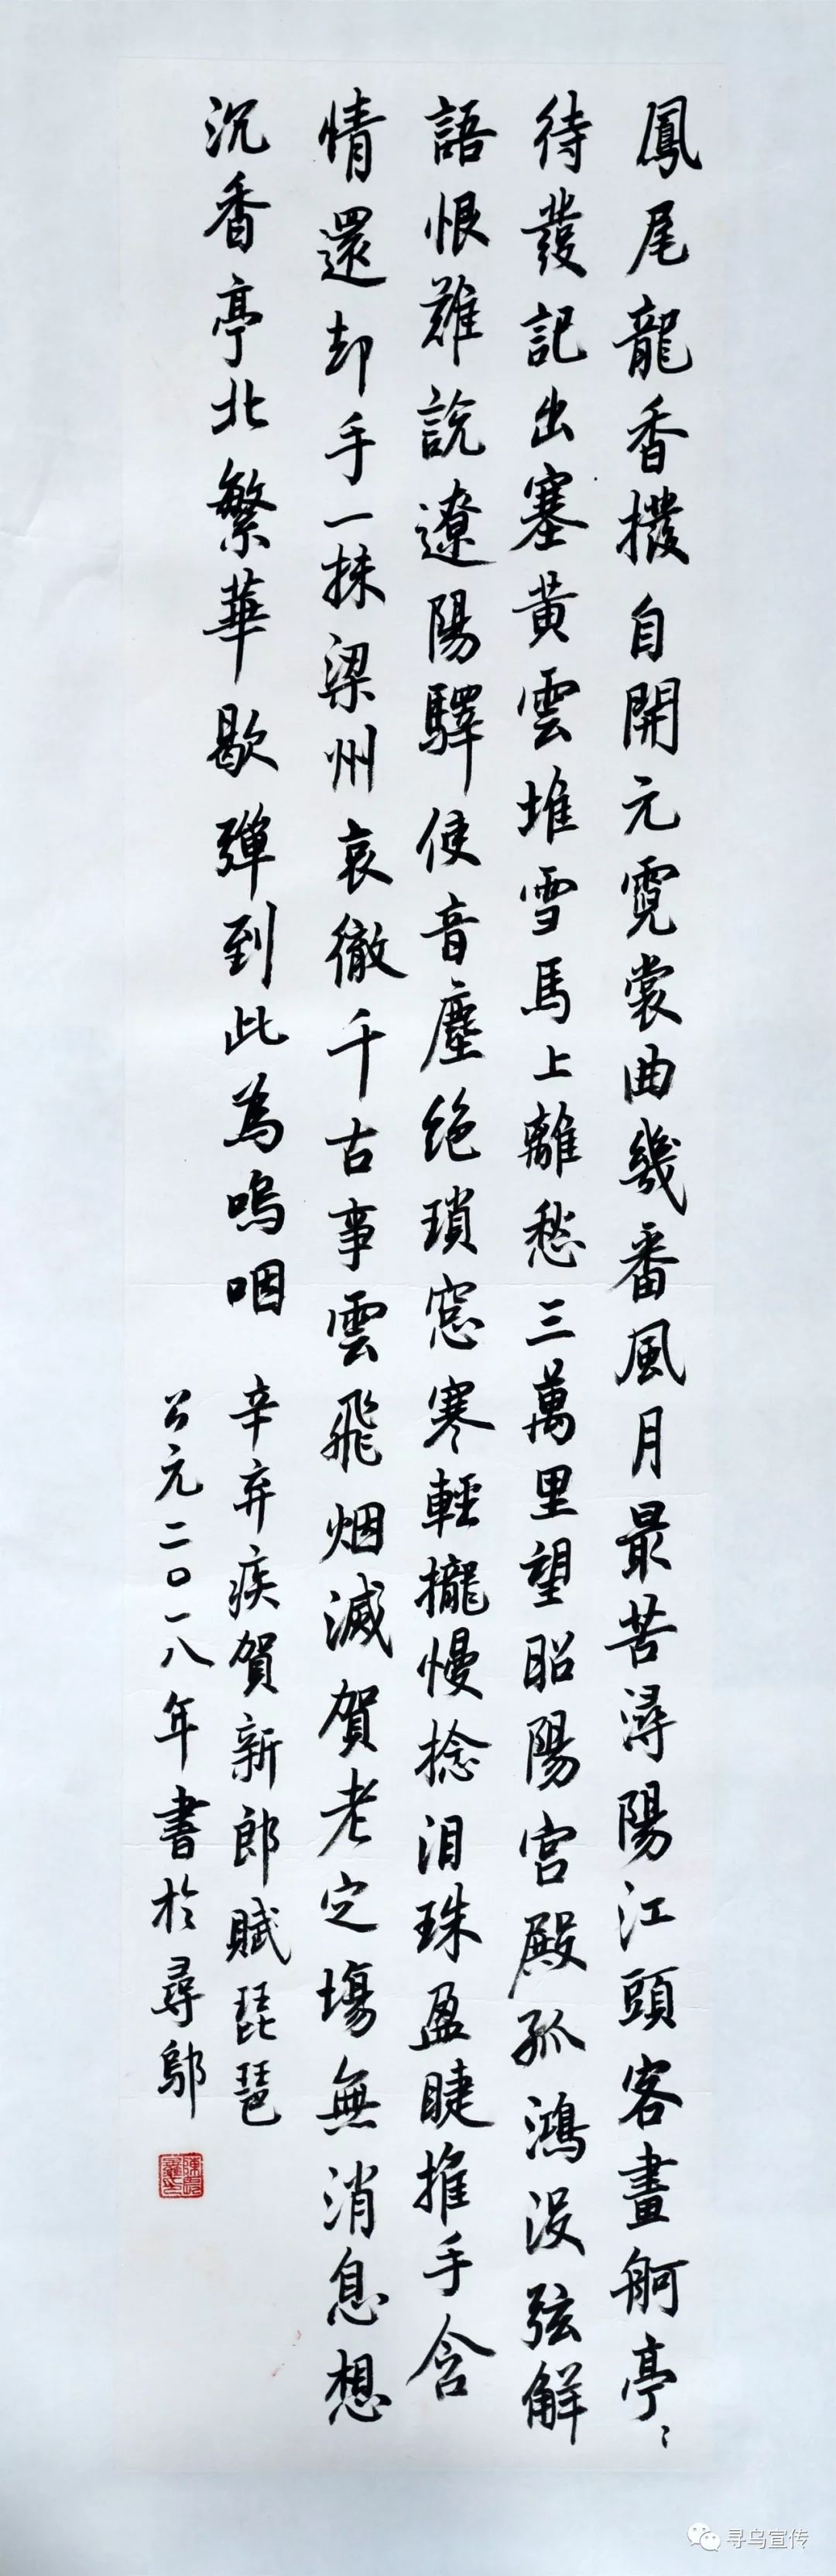 鳳尾龍香撥自開元霓裳曲幾番風月最苦潯陽江頭客畫舸亭〻
待發記出塞黄雲堆雪馬上離愁三萬里望昭陽宫殿孤鴻没弦解
語恨難說遼陽驛使音塵絶瑣窓寒輕攏慢捻泪珠盈睫推手含
情還却手一抹梁州哀徹千古事雲飛烟滅賀老定場無消息想
沉香亭北繁華歇彈到此為嗚咽
辛弃疾賀新郎賦琵琶
公元二〇一八年書於尋鄔
寻乌宣传